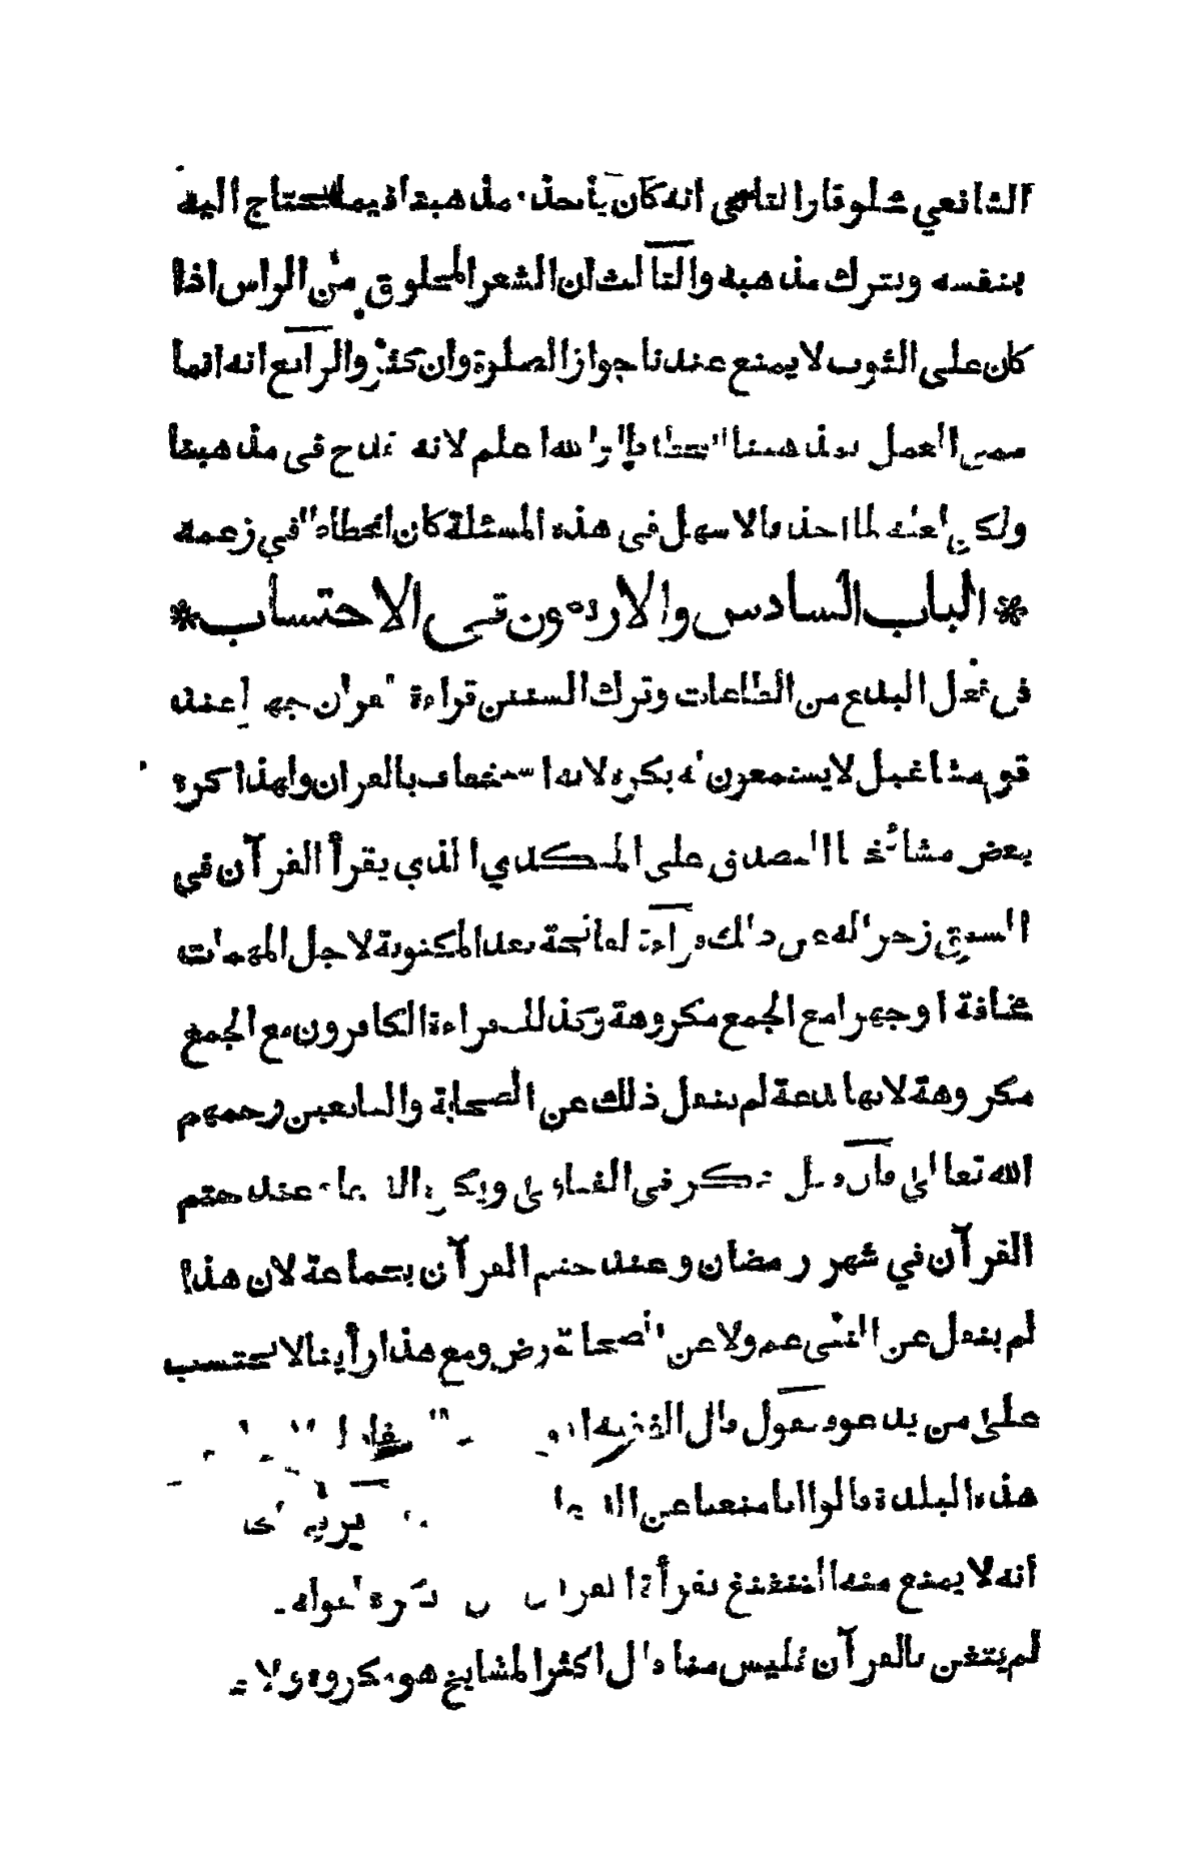 الشافعي شلوقار القاضي انه كان يأخذ مذهبنا فيما يحتاج اليه
بنفسه ويترك مذهبه والثالث ان الشعر المحلوق من الراس اذا
كان على الثوب لا يمنع عندنا جواز الصلوة وان كثر والرابع انه انما
العمل بمذهبنا والله اعلم لانه قدح في مذهبنا
ولكن لما اخذ بالاسهل في هذه المسئلة كان في زعمه
* الباب السادس والاربعون في الاحتساب *
في فعل البدع من الطاعات وترك السنن قراءة القرآن جهرا عند
قوم مشاغيل لا يستمعون له يكره لانه استخفاف بالقرآن ولهذا كره
بعض مشائخنا التصدق على المكدي الذي يقرأ القرآن في
السوق زجرا له عن ذلك قراءة الفاتحة بعد المكتوبة لاجل المهمات
مخافة او جهرا مع الجمع مكروهة وكذلك قراءة الكافرون مع الجمع
مكروهة لانها بدعة لم ينقل ذلك عن الصحابة والتابعين رحمهم
الله تعالى قال ذكر في الفتاوى ويكره الدعاء عند ختم
القرآن في شهر رمضان وعند ختم القرآن بجماعة لان هذا
لم ينقل عن النبي عم ولا عن الصحابة رض ومع هذا رأينا لا يحتسب
على من يدعو ويقول قال الفقيه
هذه البلدة قالوا انا منعنا عن
انه لا يمنع منه التغني بقرأة القرآن
لم يتغن بالقرآن فليس منا قال اكثر المشايخ هو مكروه ولا